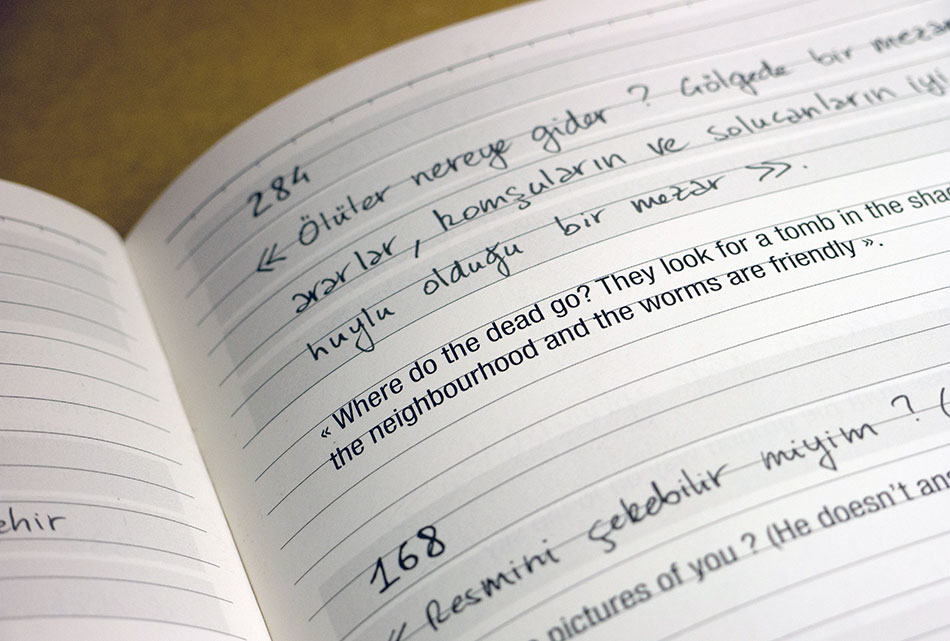 ehir
284
« Ölüler nereye gider ? Gölgede bir mezar
ararlar, komşuların ve solucanların iyi
huylu olduğu bir mezar ».
« Where do the dead go? They look for a tomb in the sha
the neighbourhood and the worms are friendly ».
168
« Resmini çekebilir miyim ? (
pictures of you ? (He doesn't ans